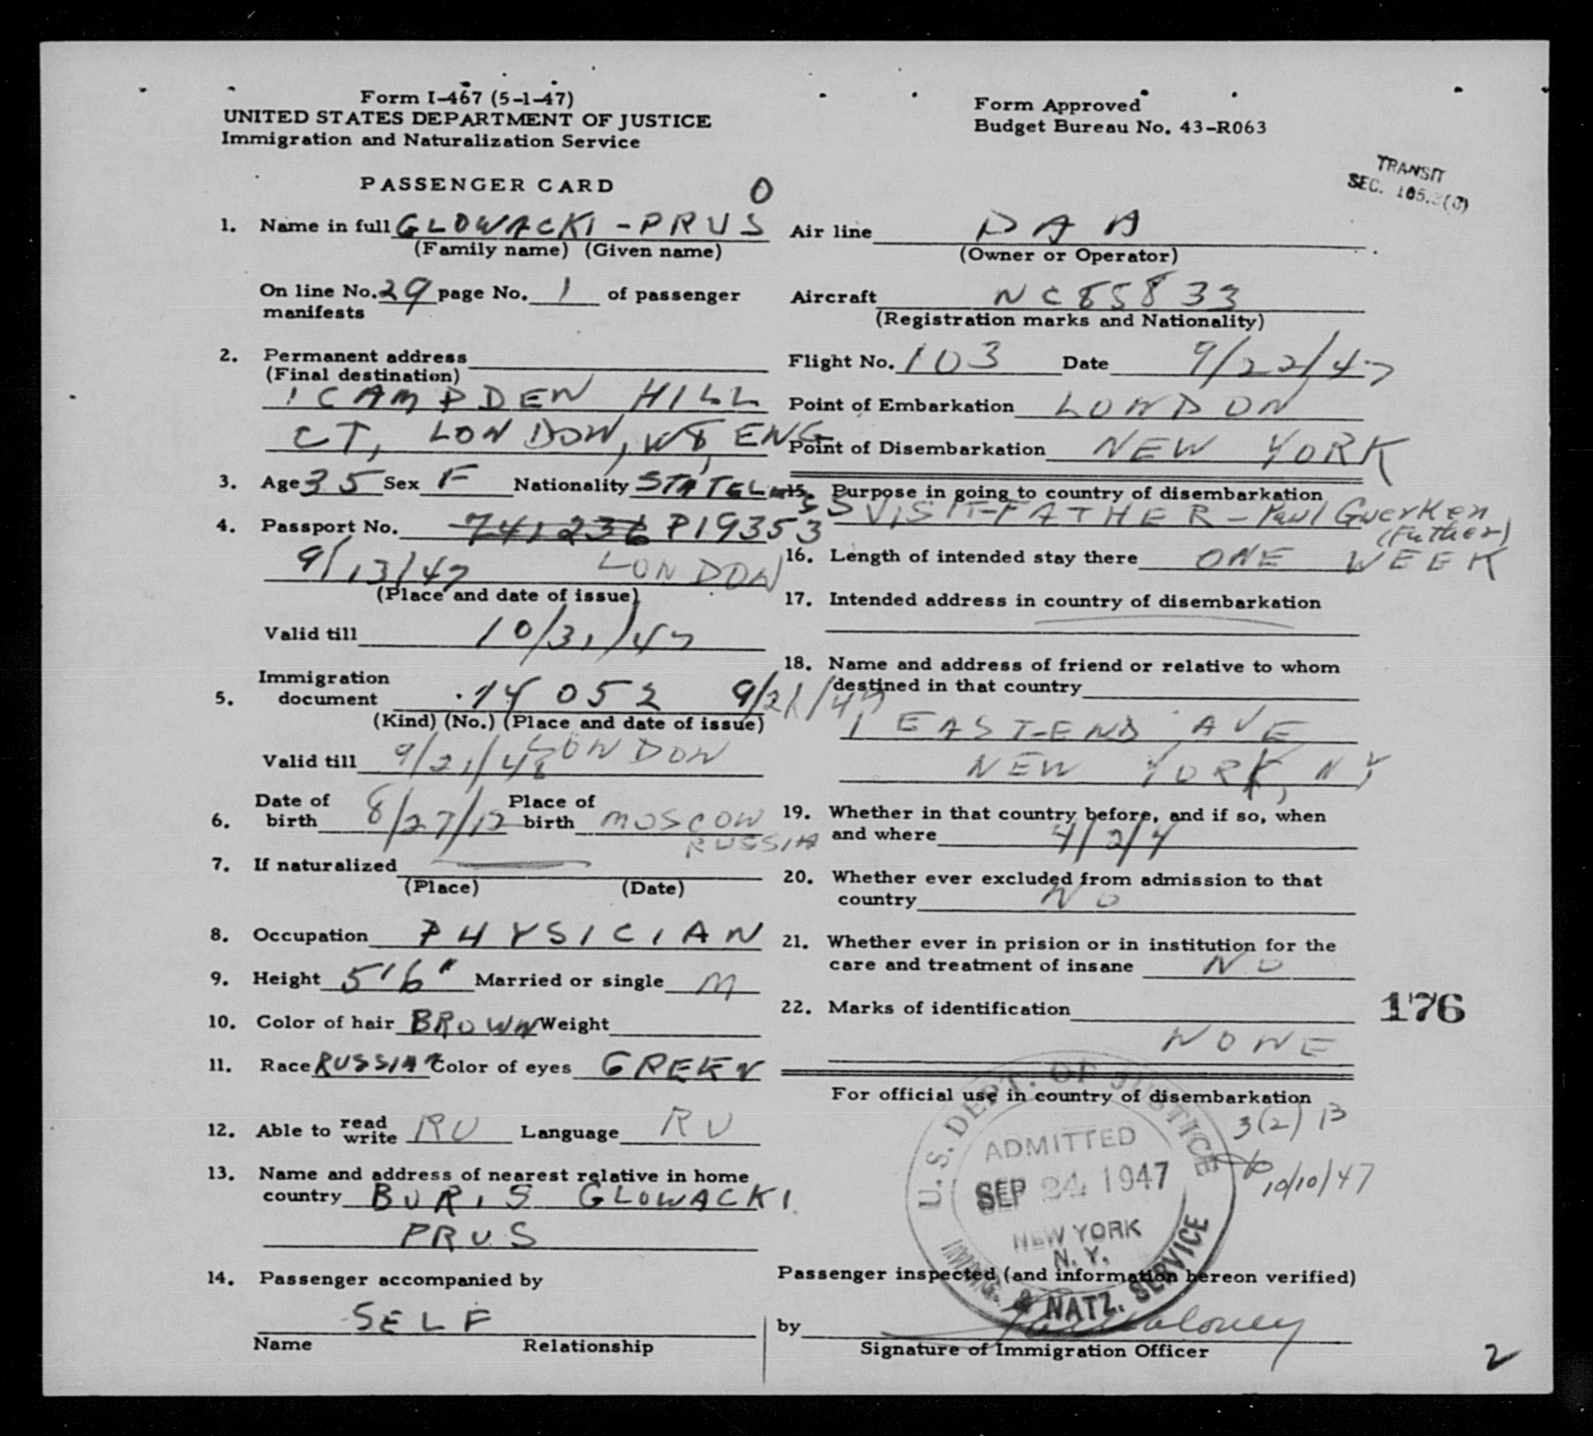 Form I-467 (5-1-47)
UNITED STATES DEPARTMENT OF JUSTICE
Immigration and Naturalization Service
Form Approved
Budget Bureau No. 43-R063
TRANSIT
SEC. 105.3(J)
PASSENGER CARD
O
1. Name in full GLOWACKI - PRUS
(Family name) (Given name)
On line No. 29 page No. 1 of passenger
manifests
2. Permanent address
(Final destination)
1 CAMPDEN HILL
CT, LONDON, W8, ENG
3. Age 35 Sex F Nationality STATELESS
4. Passport No. 741236 P19353
9/13/47 LONDON
(Place and date of issue)
Valid till 10/31/47
5. Immigration
document 14052 9/21/47
(Kind) (No.) (Place and date of issue)
LONDON
Valid till 9/21/48
6. Date of birth 8/27/12 Place of birth MOSCOW
RUSSIA
7. If naturalized
(Place) (Date)
8. Occupation PHYSICIAN
9. Height 5'6" Married or single M
10. Color of hair BROWN Weight
11. Race RUSSIAN Color of eyes GREEN
12. Able to read write RU Language RU
13. Name and address of nearest relative in home
country BORIS GLOWACKI
PRUS
14. Passenger accompanied by
SELF
Name Relationship
Air line PAA
(Owner or Operator)
Aircraft NC88833
(Registration marks and Nationality)
Flight No. 103 Date 9/22/47
Point of Embarkation LONDON
Point of Disembarkation NEW YORK
15. Purpose in going to country of disembarkation
VISIT-FATHER - Paul Guerken
(Father)
16. Length of intended stay there ONE WEEK
17. Intended address in country of disembarkation
18. Name and address of friend or relative to whom
destined in that country
1 EAST-END AVE
NEW YORK, NY
19. Whether in that country before, and if so, when
and where 4/2/4
20. Whether ever excluded from admission to that
country NO
21. Whether ever in prision or in institution for the
care and treatment of insane NO
22. Marks of identification
NONE
176
For official use in country of disembarkation
3(2) B
10/10/47
U.S. DEPT. OF JUSTICE
ADMITTED
SEP 24 1947
NEW YORK
N. Y.
IMMIG. & NATZ. SERVICE
Passenger inspected (and information hereon verified)
by Maloney
Signature of Immigration Officer
2